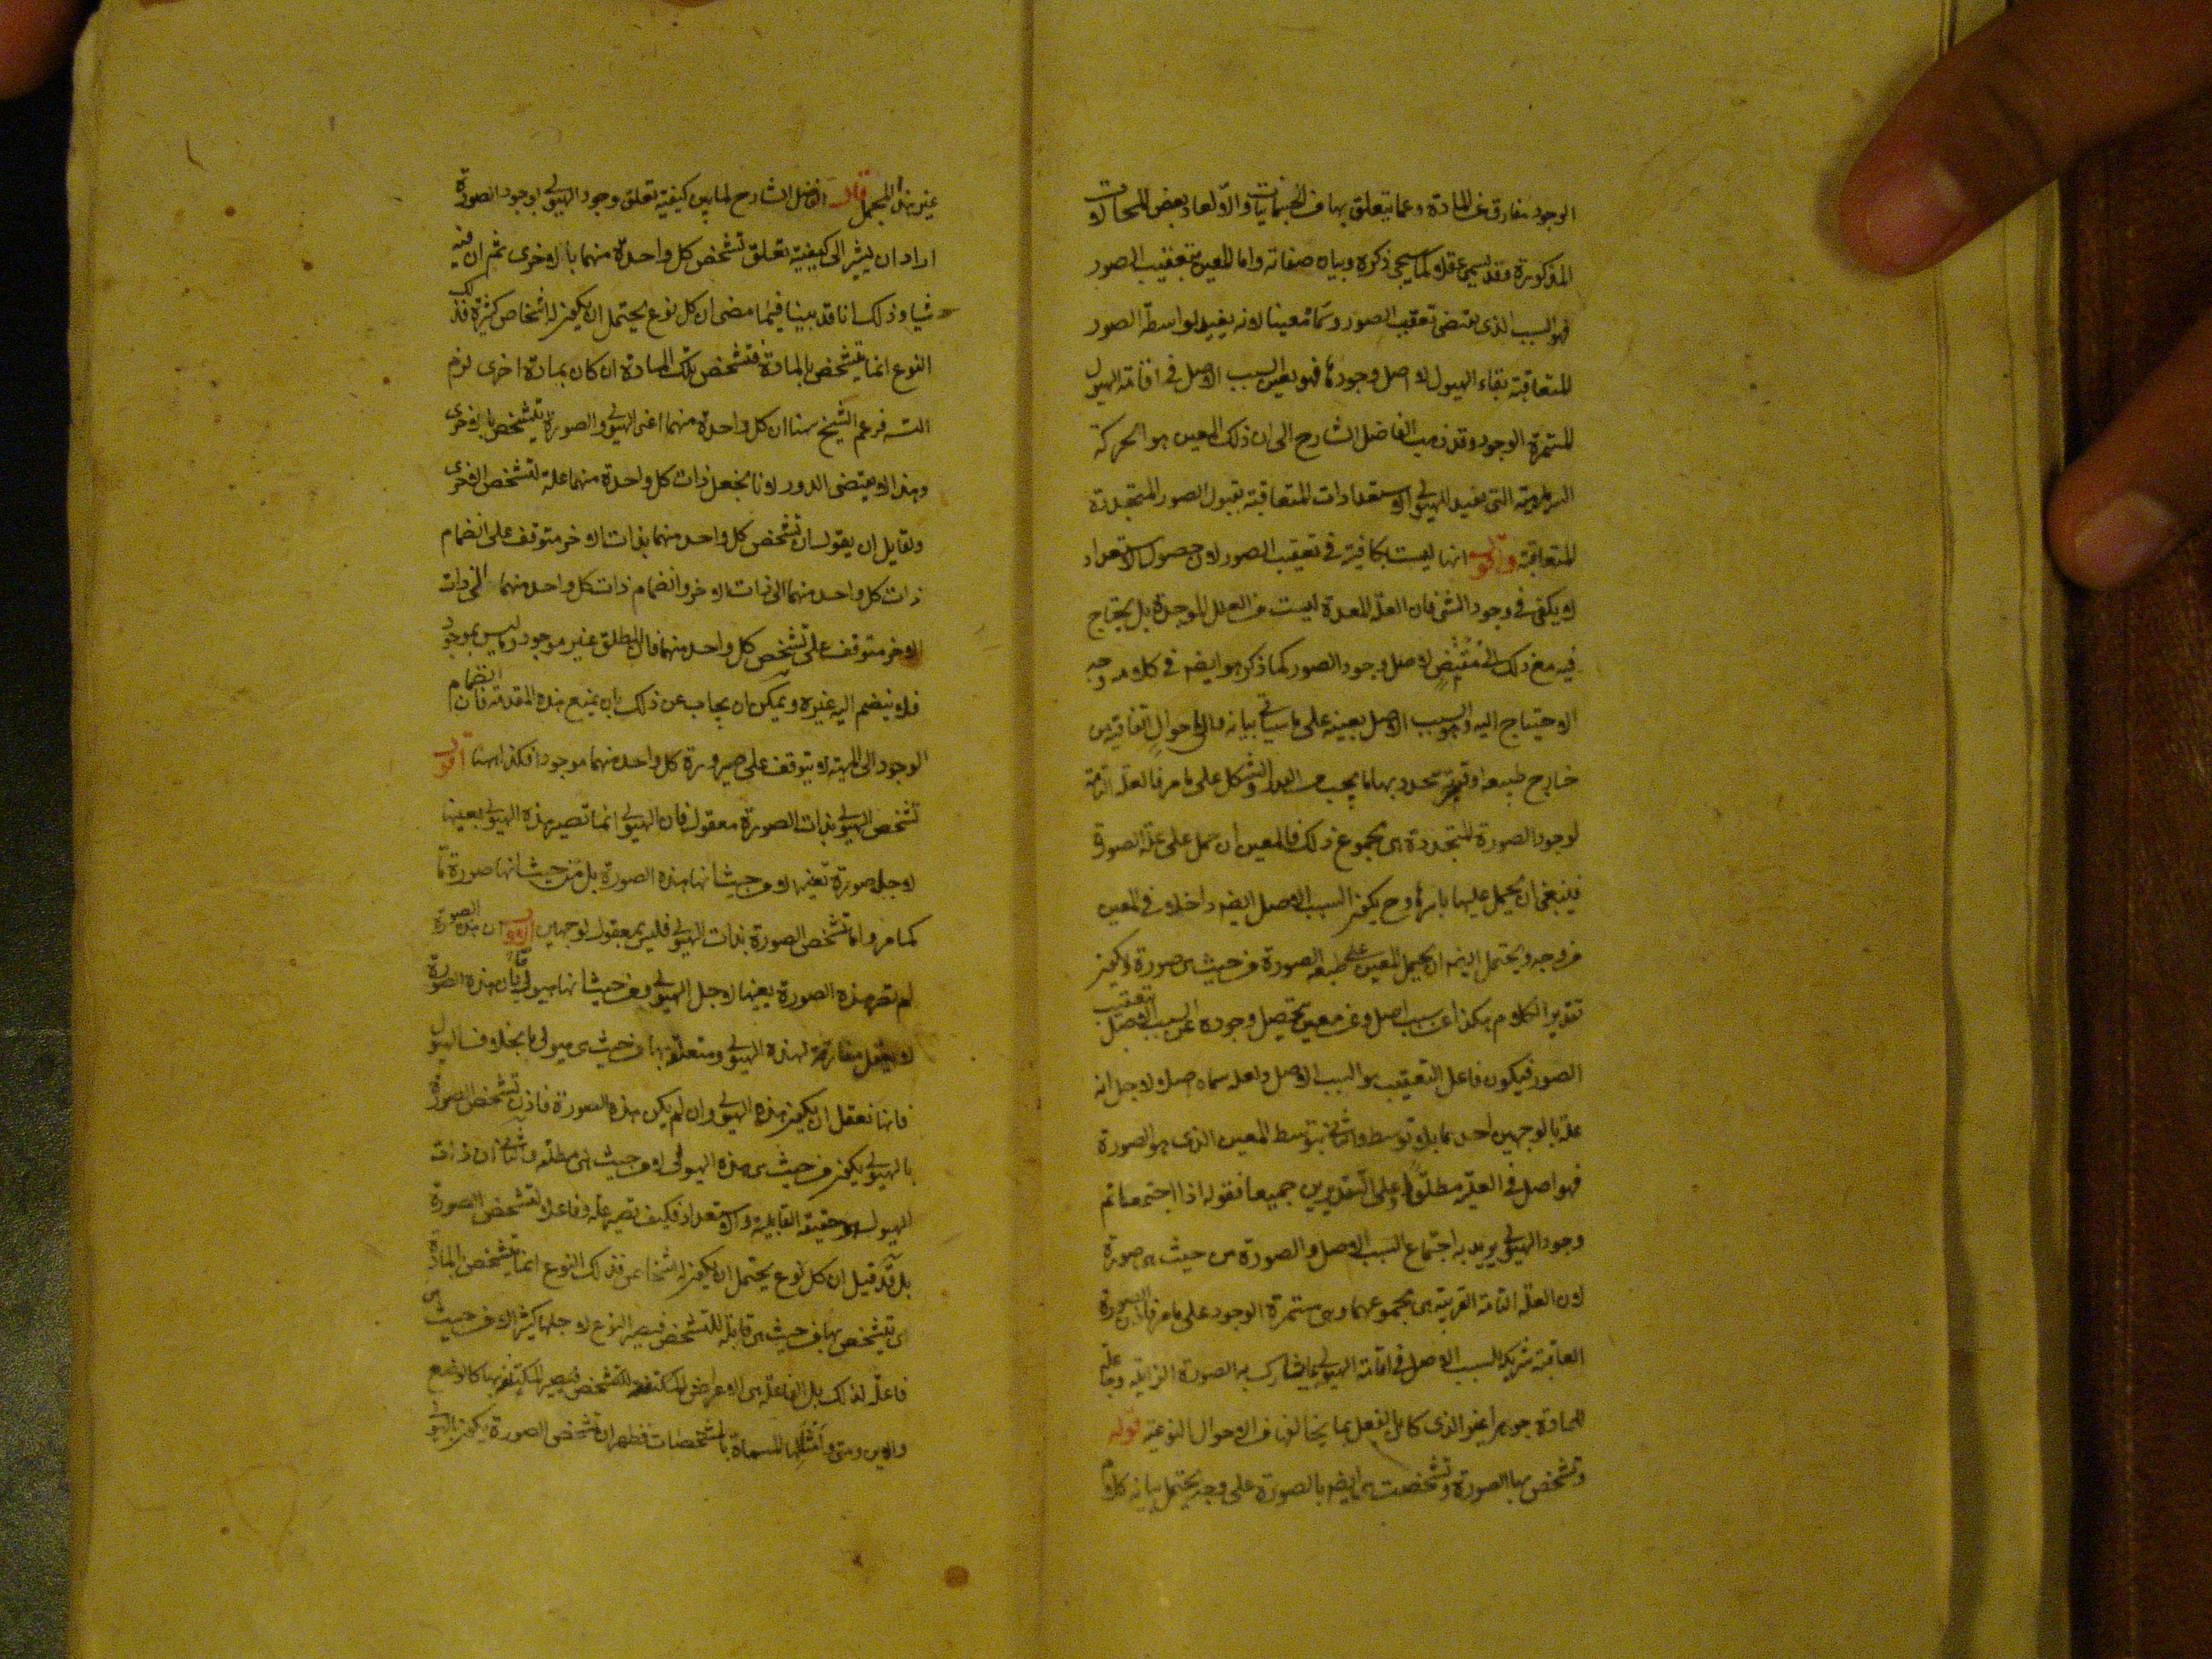 الوجود مفارق عن المادة وعما يتعلق بها من الجسمانيات والا لعاد بعض المحالات
المذكورة وقد يسمى عقلا كما سيجي ذكره وبيان صفاته واما المعين بتعقيب الصور
فهو السبب الذى يقتضى تعقيب الصور وسماه معينا لانه يفيد بواسطة الصور
المتعاقبة بقاء الهيولى لا اصل وجودها فهو يعين السبب الاصل فى اقامة الهيولى
المستمرة الوجود وقد ذهب الفاضل الشارح الى ان ذلك المعين هو الحركة
السرمدية التى تفيد الهيولى الاستعدادات المتعاقبة بقبول الصور المتجددة
المتعاقبة واقول انها ليست بكافية فى تعقيب الصور لان حصول الاستعداد
لا يكفى فى وجود الشئ فان العلة المعدة ليست من العلل الموجدة بل يحتاج
فيه مع ذلك الى مفيض لاصل وجود الصور كما ذكر هو ايضا فى كلامه وجه
الاحتياج اليه وهو السبب الاصل بعينه على ما سياتى بيانه والى احوال اتفاقية من
خارج طبيعه او قسرية تحدد بها ما يجب من القدر والشكل على ما مر فالعلة التامة
لوجود الصورة المتجددة هى مجموع ذلك فالمعين ان حمل على علة الصورة
فينبغى ان يحمل عليها باسرها وح يكون السبب الاصل ايضا داخلا فى المعين
من وجه ويحتمل ايضا ان يحمل المعين على طبيعة الصورة من حيث هى صورة ويكون
تقدير الكلام هكذا عن سبب اصل وعن معين يحصل وجوده عن السبب الاصل بتعقيب
الصور فيكون فاعل التعقيب هو السبب الاصل ولعله سماه اصلا لاجل انه
علة بالوجهين احدهما بلا توسط والثانى بتوسط المعين الذى هو الصورة
فهو اصل فى العلية مطلقا وعلى التقديرين جميعا فقوله اذا اجتمعا تم
وجود الهيولى يريد به اجتماع السبب الاصل والصورة من حيث هى صورة
لان العلة التامة القريبة هى مجموعهما وهى مستمرة الوجود على ما مر فالصورة
العاقبة شريكة السبب الاصل فى اقامة الهيولى بما تشارك به الصورة الزايلة وجاعلة
للمادة جوهرا غير الذى كان بالفعل بما يخالفها من الاحوال النوعية قوله
وتشخص بها الصورة وتشخصت هى ايضا بالصورة على وجه يحتمل بيانه كلام
غير هذا المجمل قال الفاضل الشارح لما بين كيفية تعلق وجود الهيولى بوجود الصورة
اراد ان يشير الى كيفية تعلق تشخص كل واحدة منهما بالاخرى ثم ان فيه
شيا وذلك انا قد بينا فيما مضى ان كل نوع يحتمل ان يكون له اشخاص كثيرة فذلك
النوع انما يتشخص بالمادة فتشخص تلك المادة ان كان بمادة اخرى لزم
التسه فزعم الشيخ هنا ان كل واحدة منهما اعنى الهيولى والصورة تتشخص بالاخرى
وهذا لا يقتضى الدور لانا نجعل ذات كل واحدة منهما علة لتشخص الاخرى
ولقايل ان يقول ان تشخص كل واحد منهما بذات الاخر متوقف على انضمام
ذات كل واحد منهما الى ذات الاخر وانضمام ذات كل واحد منهما الى ذات
الاخر متوقف على تشخص كل واحد منهما فان المطلق غير موجود وما ليس بموجود
فلا ينضم اليه غيره ويمكن ان يجاب عن ذلك بان يمنع هذه المقدمة فان انضمام
الوجود الى الماهية لا يتوقف على صيرورة كل واحد منهما موجودا فكذا هنا اقول
تشخص الهيولى بذات الصورة معقول فان الهيولى انما تصير هذه الهيولى بعينها
لاجل صورة تعينها لا من حيث انها هذه الصورة بل من حيث انها صورة ما
كما مر واما تشخص الصورة بذات الهيولى فليس بمعقول لوجهين الاول ان هذه الصورة
لم تصر هذه الصورة بعينها لاجل الهيولى من حيث انها هيولى ما فان هذه الصورة
لا يعقل مفارقة لهذه الهيولى ومتعلقة بها من حيث هى هيولى ما بخلاف الهيولى
فانها نعقل ان يكون هذه الهيولى وان لم يكن هذه الصورة فاذن تشخص الصورة
بالهيولى يكون من حيث هى هذه الهيولى لا من حيث هى مطلقة والثانى ان ذات
الهيولى هو حقيقة القابلية والاستعداد فكيف تصير علة وفاعلا لتشخص الصورة
بل قد قيل ان كل نوع يحتمل ان يكون له اشخاص فذلك النوع انما يتشخص بالمادة
اى يتشخص بها من حيث هى قابلة للتشخص فيصير النوع لاجلها كثيرا لا من حيث هى
فاعلة لذلك بل الفاعلة هى الاعراض المكتنفة للتشخص فيصير المكتنفة بها كالوضع
والاين ومتى وامثالها المسماة بالمشخصات فظهر ان تشخص الصورة يكون بالهيولى